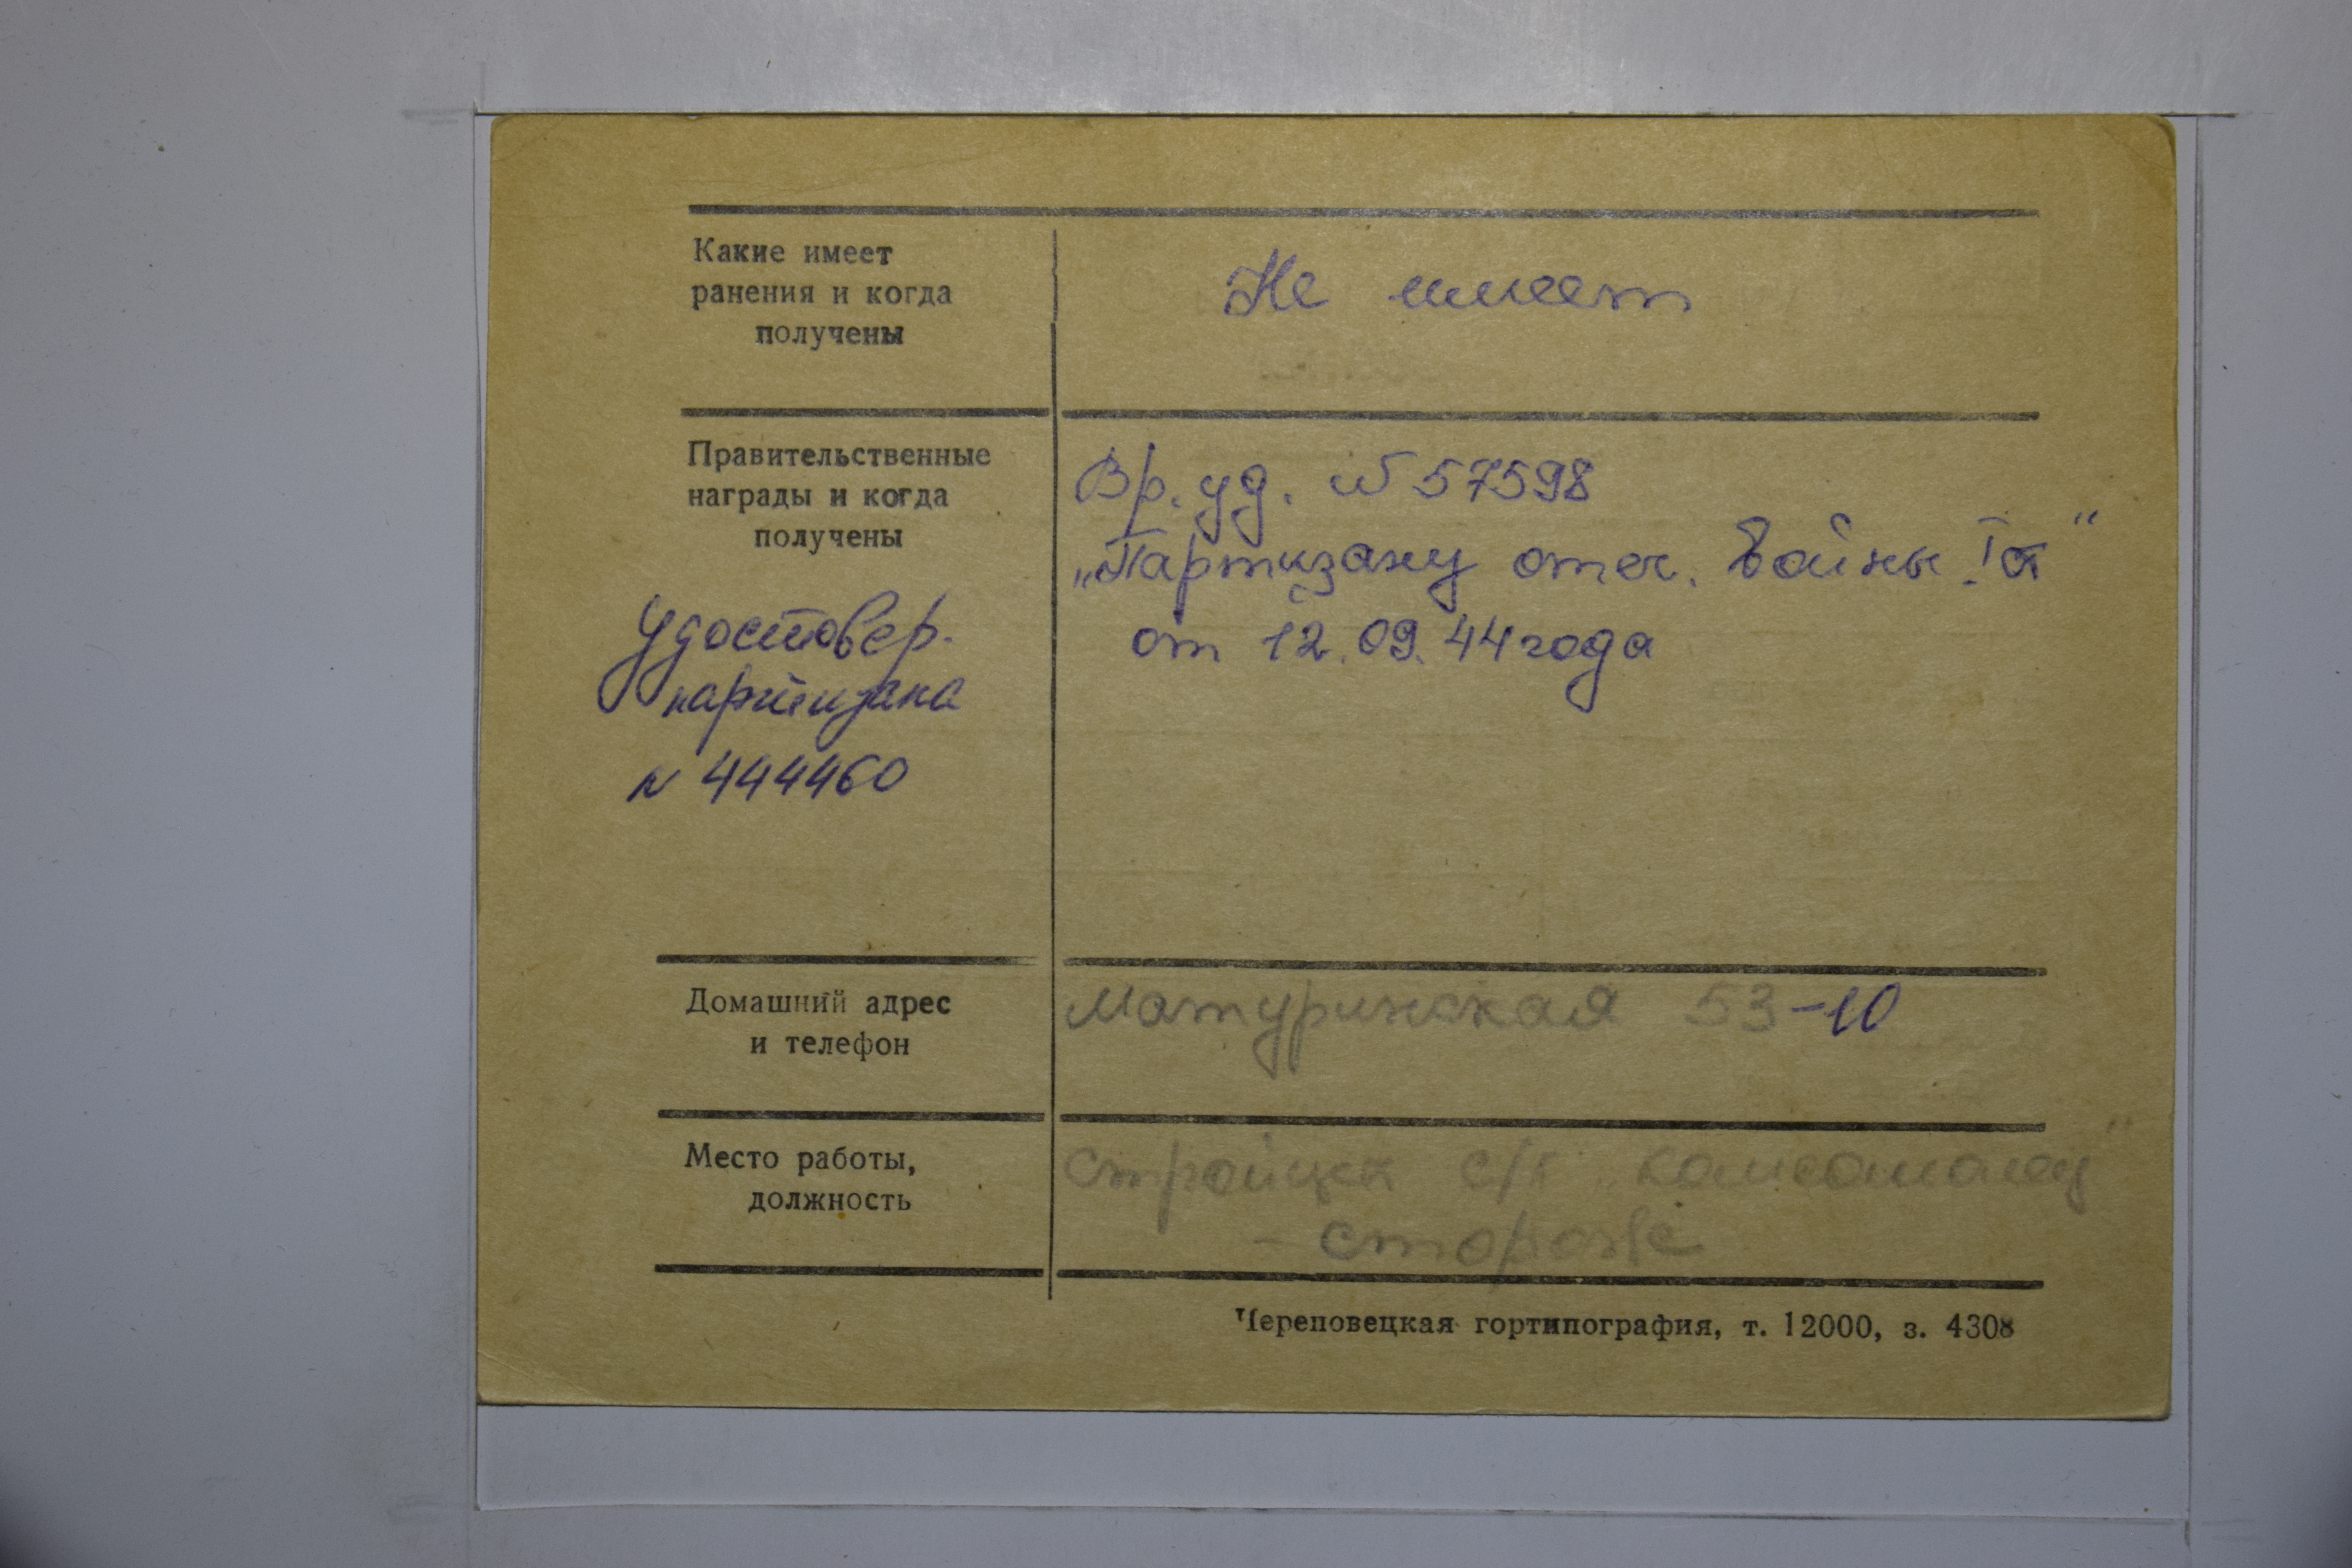 Какие имеет
ранения и когда
получены
Не имеет
Правительственные
награды и когда
получены
Вр. уд. № 57598
„Партизану отеч. войны I ст"
от 12.09.44 года
Удостовер.
партизана
N 444460
Домашний адрес
и телефон
Матуринская 53-10
Место работы,
должность
с/к „Комсомолец"
- сторож
Череповецкая гортипография, т. 12000, з. 4308